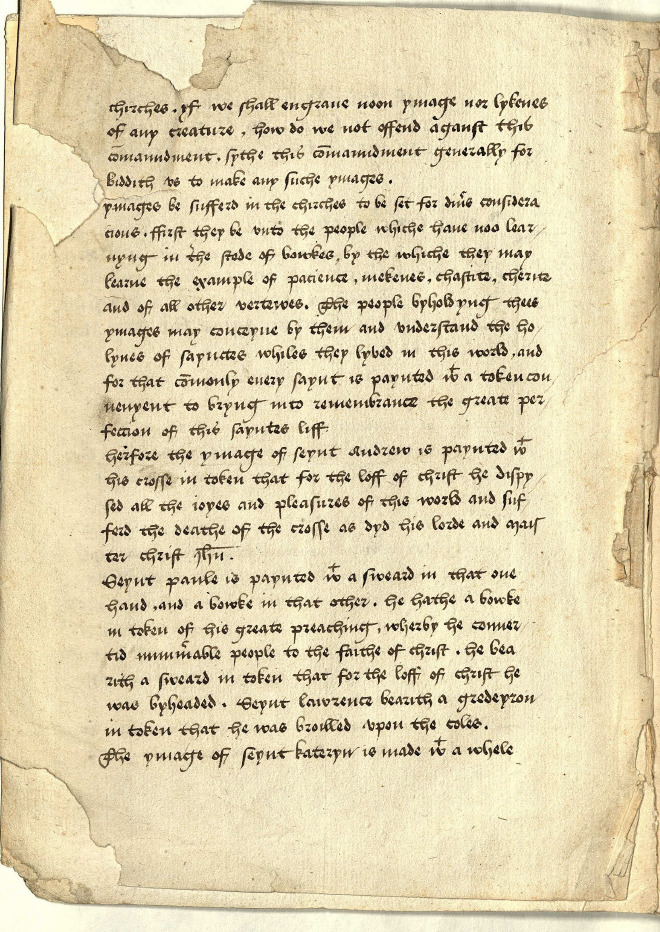 chirches . yf we shall engraue noon ymage nor lykenes
of any creature , how do we not offend aganst this
cōmanndment . sythe this cōmanndment generally for
biddith vs to make any suche ymages .
ymages be sufferd in the chirches to be set for diūs considera
cious . ffirst they be vnto the people whiche haue noo lear /
nyng in the stede of bowkes , by the whiche they may
learne the example of pacience , mekenes , chastite , cherite
and of all other vertewes . The people byholdyng thes
ymages may conceyue by them and vnderstand the ho /
lynes of saynctes whiles they lybed in this world , and
for that cōmonly euery saynt is paynted wt a token con /
uenyent to bryng into remembrance the greate per /
fection of this sayntes liff
herfore the ymage of seynt Andrew is paynted wt
his crosse in token that for the loff of christ he dispy /
sed all the ioyes and pleasures of this world and suf /
ferd the deathe of the crosse as dyd his lorde and mais
ter christ Jhū .
Seynt paule is paynted wt a sweard in that one
hand , and a bowke in that other . he hathe a bowke
in token of his greate preaching , wherby he conuer /
tid innūmable people to the faithe of christ . he bea
rith a sweard in token that for the loff of christ he
was byheaded . Seynt lawrence bearith a gredeyron
in token that he was broilled vpon the coles .
The ymage of seynt kateryn is made wt a whele